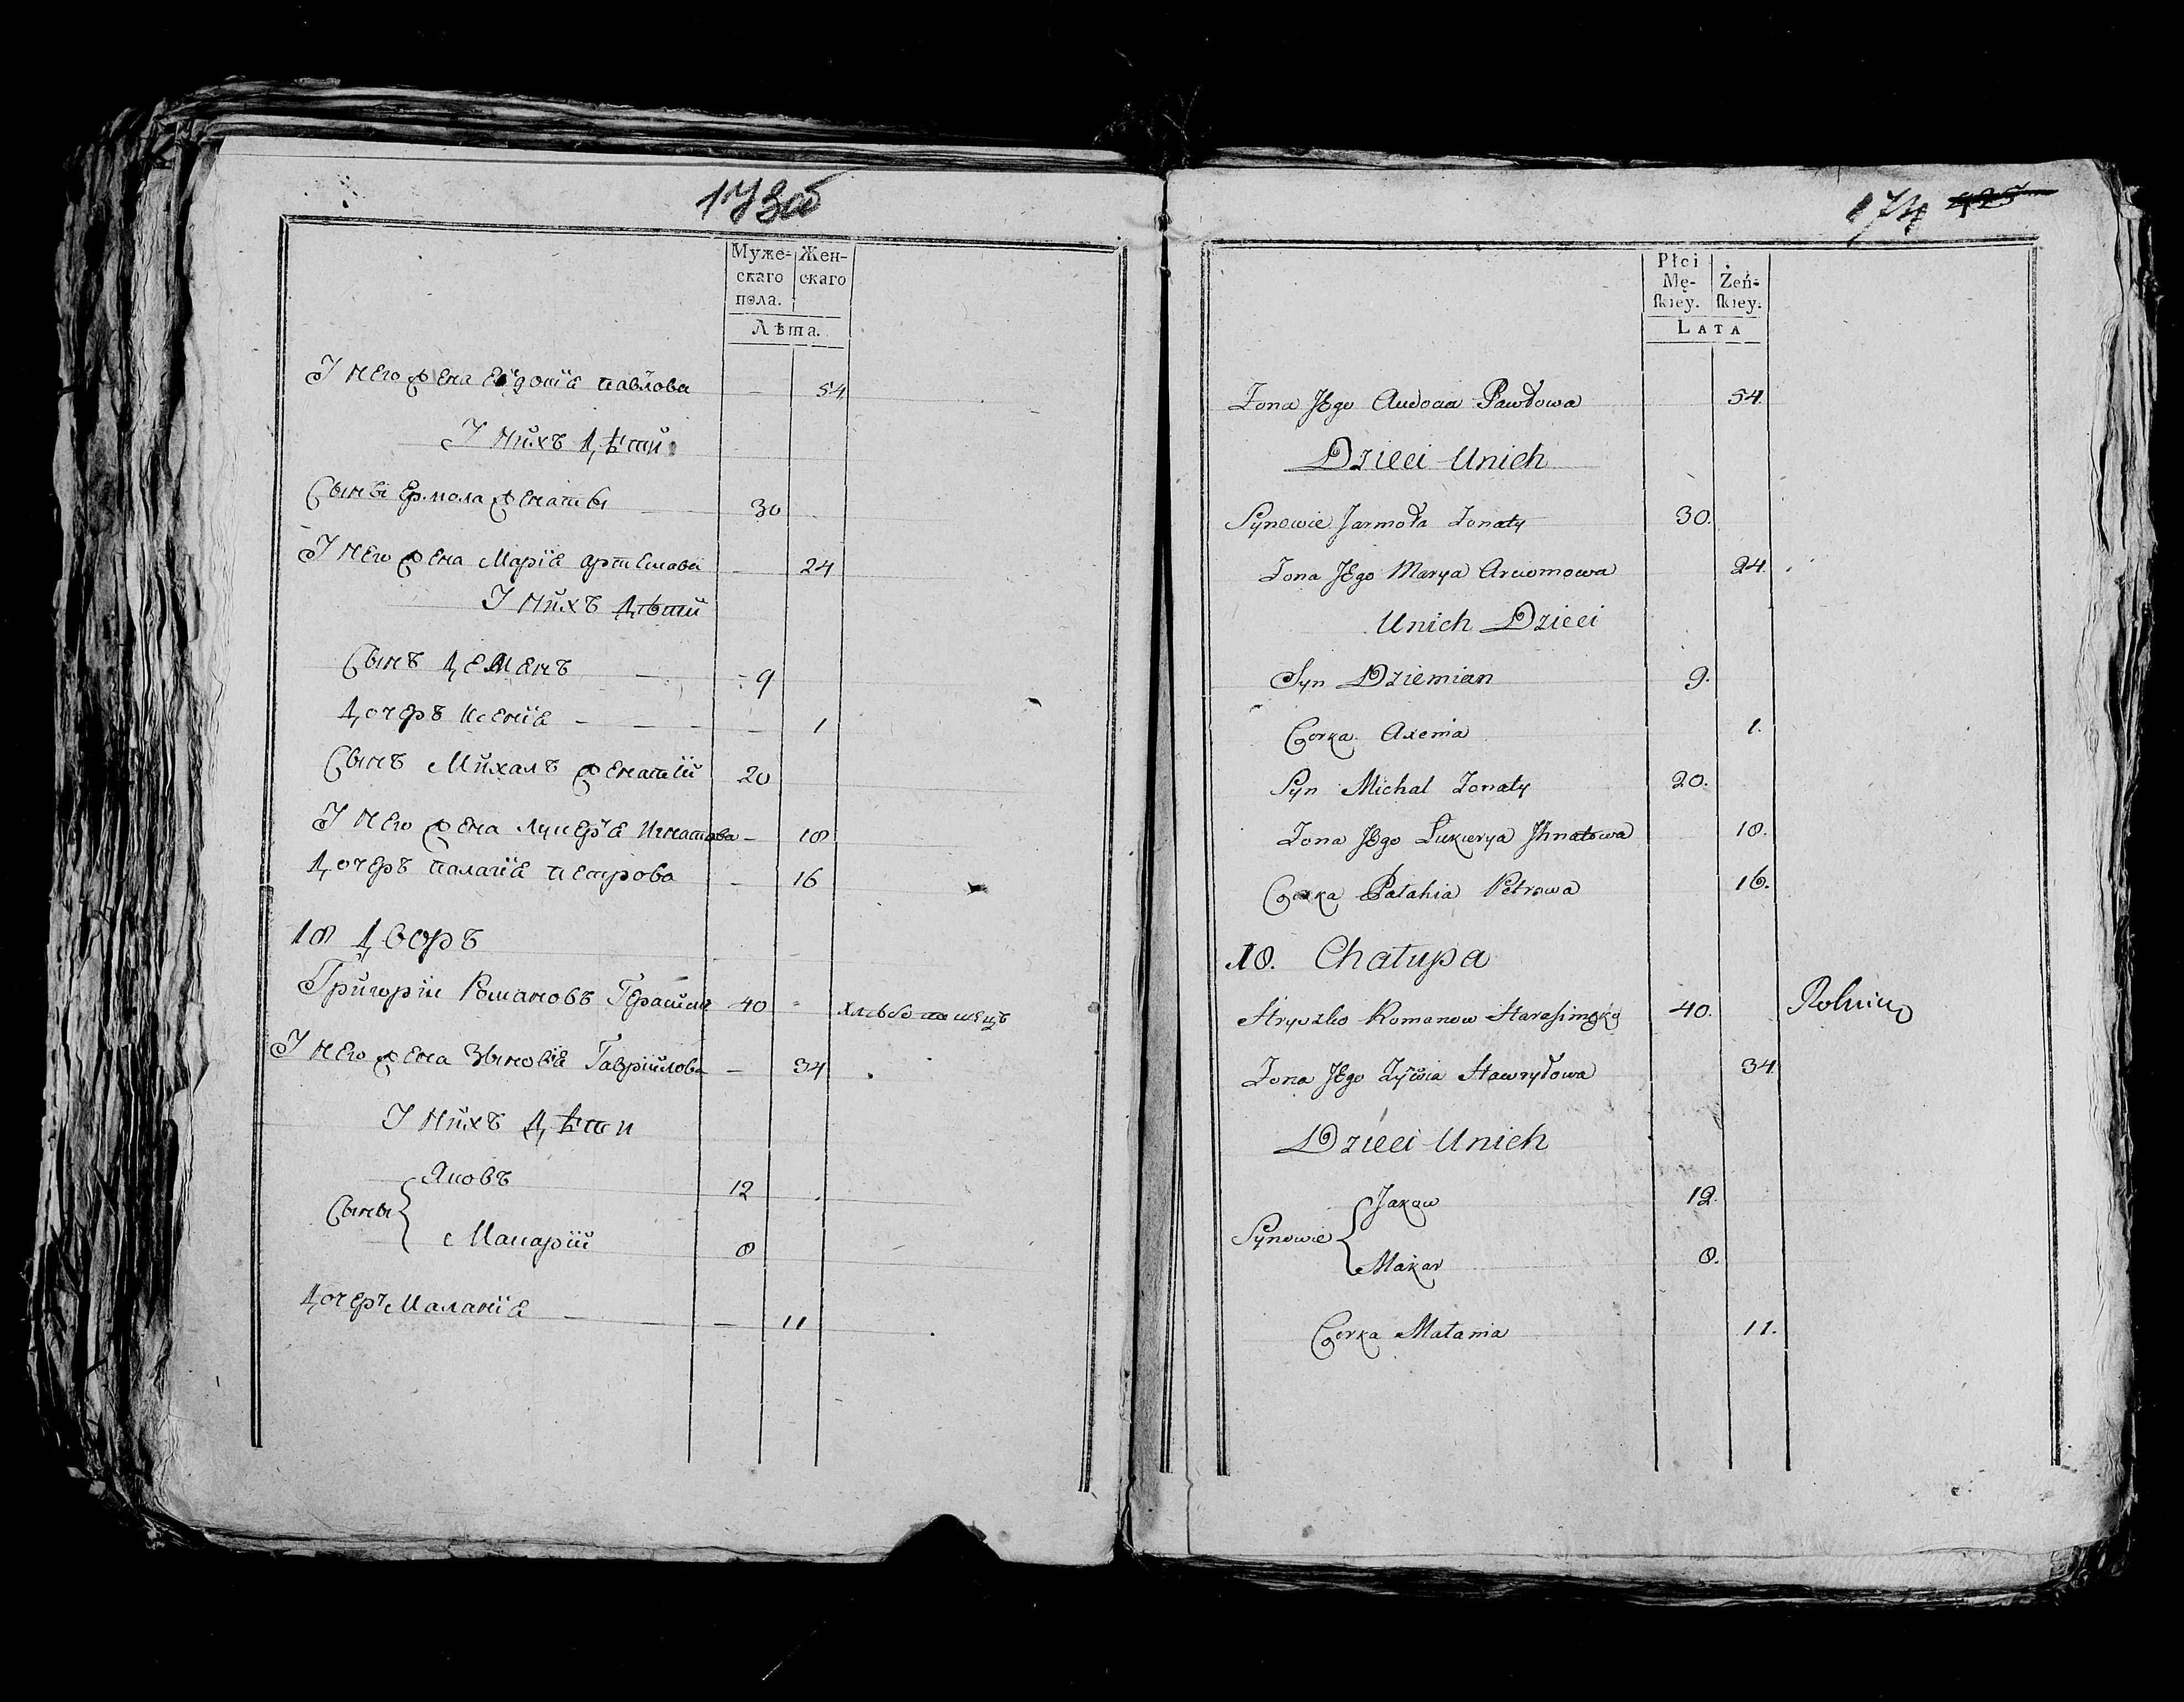 173об
Муже- Жен-
скаго скаго
пола.
Лѣта.
У него жена Евдокія павлова — 54
У нихъ дѣти
Сыны Ермола женаты 30
У него жена Марія артемова — 24
У нихъ дѣти
Сынъ демянъ — 9
дочеръ ксенія — — — 1
Сынъ Михалъ женатій 20
У него жена лукерія игнатова — 18
дочеръ палагія петрова — 16
18 дворъ
Григорій Романовъ 40 хлѣбопашецъ
У него жена Зѣновія Гаврійлова — 34
У нихъ дѣти
Яковъ 12
Сыны {
Макарій 8
дочеръ Маланія — — 11
174 425
Płci
Mę- Żeń-
skiey. skiey.
LATA
Zona JEgo Audocia Pawłowa 54.
Dzieci Unich
Synowie Jarmoła Zonaty 30.
Zona JEgo Marya Arciomowa 24.
Unich Dzieci
Syn Dziemian 9.
Corka Axenia 1.
Syn Michal Zonaty 20.
Zona JEgo Łukierya Jhnatowa 18.
Corka Pałahia Petrowa 16.
18. Chałupa
Hryszko Romanow 40. Rolnik
Zona JEgo Hawryłowa 34.
Dzieci Unich
Jakow 12.
Synowie {
Makar 8.
Corka Małania 11.